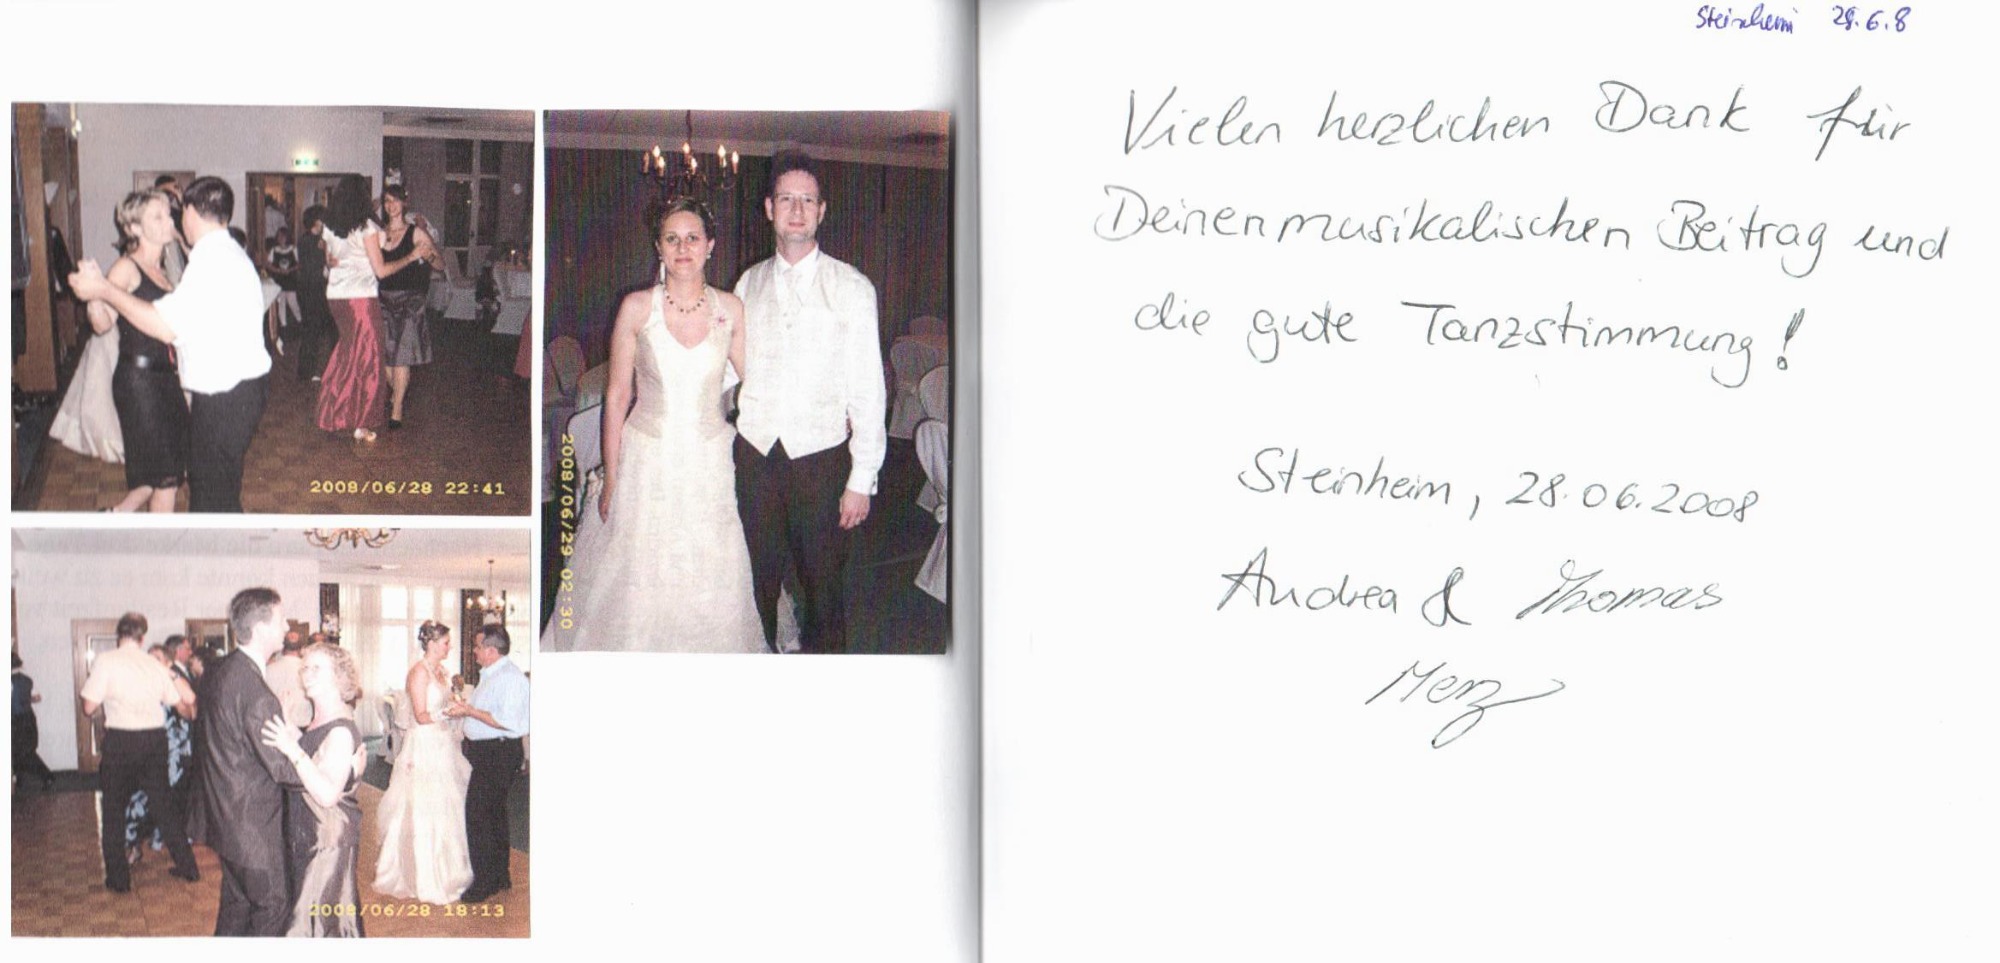 2008/06/28 22:41
2008/06/29 02:30
2008/06/28 18:13
Steinheim 28.6.8
Vielen herzlichen Dank für
Deinen musikalischen Beitrag und
die gute Tanzstimmung!
Steinheim, 28.06.2008
Andrea & Thomas
Merz